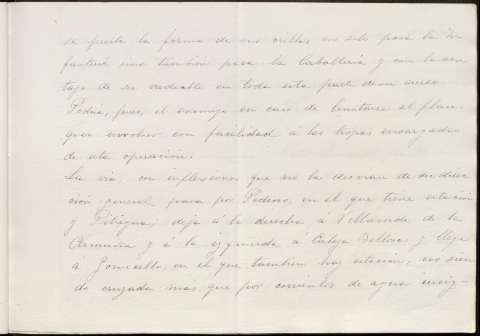 se presta la forma de sus orillas no solo para la In-
fantería sino también para la Caballería y con la ven-
taja de ser vadeable en toda esta parte de su curso.
Podría, pues, el enemigo en caso de limitarse al flan-
queo envolver con facilidad á las tropas encargadas
de esta operación.
La vía, con inflexiones que no la desvían de su direc-
ción general pasa por Pedroso, en el que tiene estación
y Pitiegua; deja á la derecha á Villaverde de la
Armuña y á la izquierda á Cabeza Bellosa y llega
á Gomecello, en el que también hay estación, no sien-
do cruzada mas que por corrientes de agua insig-